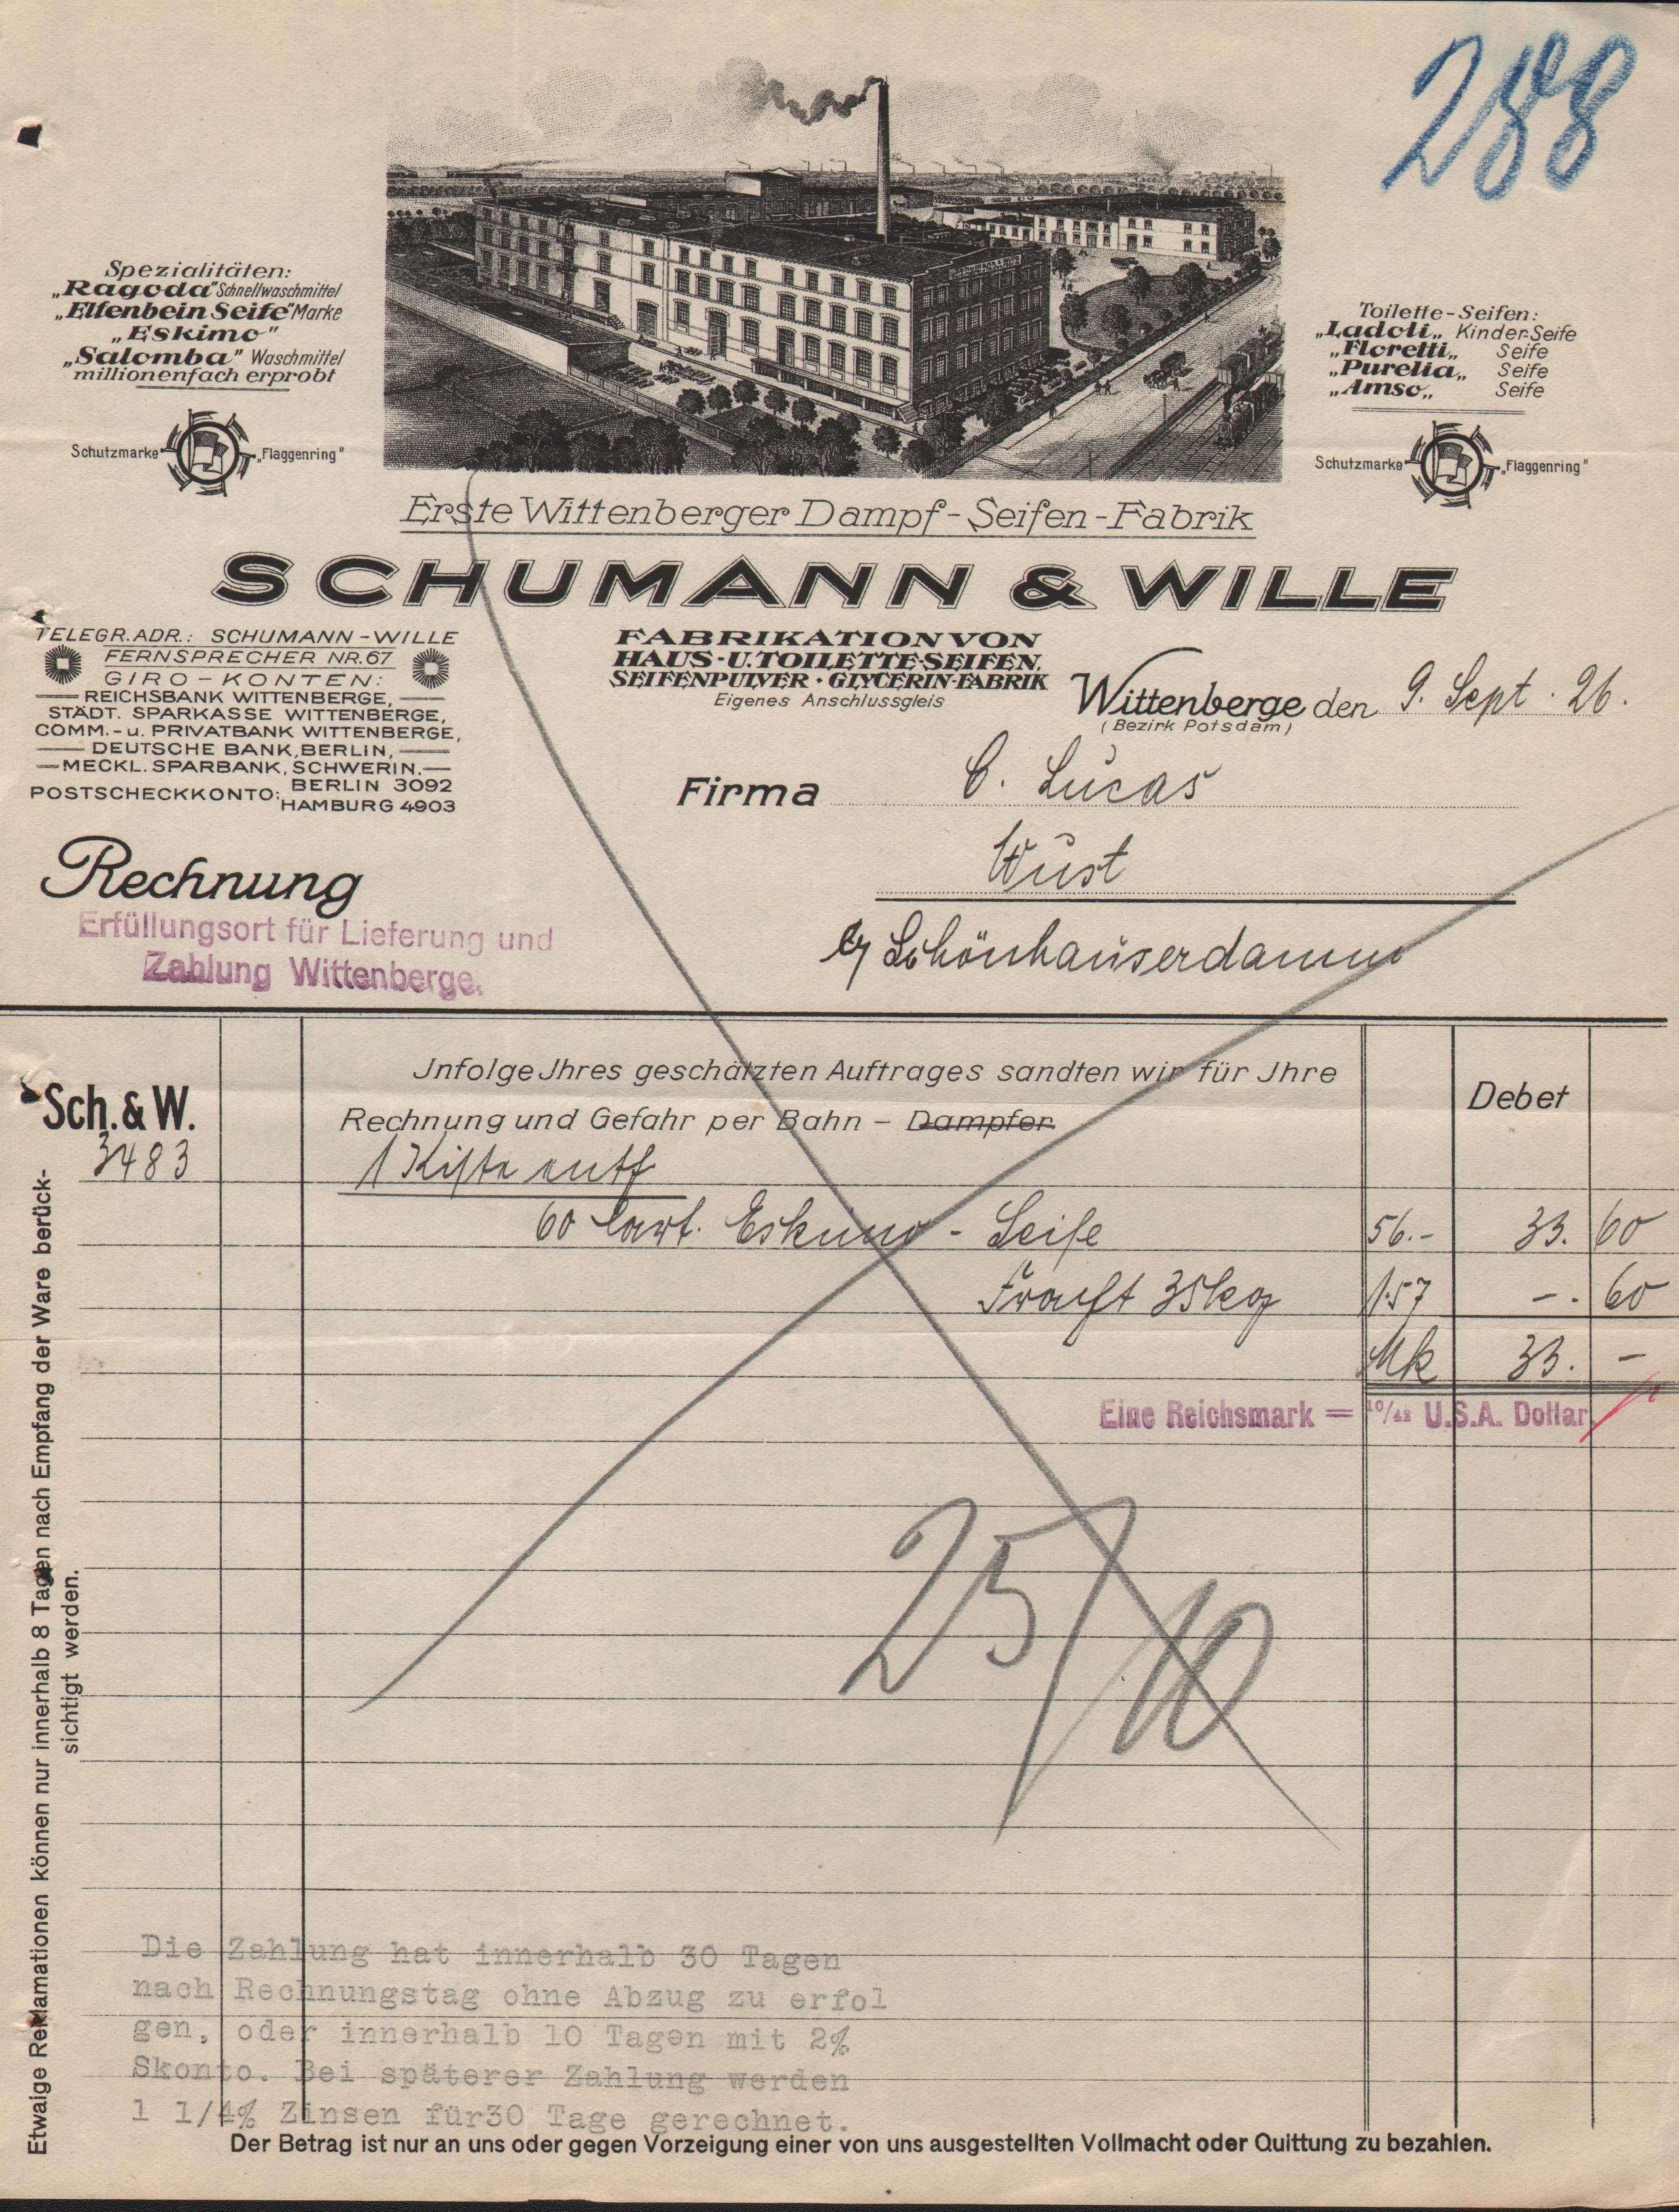 288
Spezialitäten:
„Ragoda" Schnellwaschmittel
„Elfenbein Seife" Marke
„Eskimo"
„Salomba" Waschmittel
millionenfach erprobt
Schutzmarke „Flaggenring"
Toilette-Seifen:
„Ladoli„ Kinder-Seife
„Floretti„ Seife
„Purelia„ Seife
„Amso„ Seife
Schutzmarke „Flaggenring"
Erste Wittenberger Dampf-Seifen-Fabrik
SCHUMANN & WILLE
TELEGR. ADR.: SCHUMANN-WILLE
FERNSPRECHER NR. 67
GIRO-KONTEN:
REICHSBANK WITTENBERGE,
STÄDT. SPARKASSE WITTENBERGE,
COMM.- u. PRIVATBANK WITTENBERGE,
DEUTSCHE BANK, BERLIN,
MECKL. SPARBANK, SCHWERIN.
POSTSCHECKKONTO: BERLIN 3092
HAMBURG 4903
FABRIKATION VON
HAUS- U. TOILETTE-SEIFEN,
SEIFENPULVER · GLYCERIN-FABRIK
Eigenes Anschlussgleis
Wittenberge den 9. Sept. 26.
(Bezirk Potsdam)
Firma C. Lucas
Wust
Schönhauserdamm
Rechnung
Erfüllungsort für Lieferung und
Zahlung Wittenberge.
Jnfolge Jhres geschätzten Auftrages sandten wir für Jhre
Rechnung und Gefahr per Bahn – Dampfer
Debet
Sch. & W.
3483
1 Kiste entf
60 Cart. Eskimo - Seife 56.- 33. 60
Fracht 35 kg 1.57 -. 60
Mk 33. -
Eine Reichsmark = 10/42 U.S.A. Dollar
25/10
Etwaige Reklamationen können nur innerhalb 8 Tagen nach Empfang der Ware berück-
sichtigt werden.
Die Zahlung hat innerhalb 30 Tagen
nach Rechnungstag ohne Abzug zu erfol
gen, oder innerhalb 10 Tagen mit 2%
Skonto. Bei späterer Zahlung werden
1 1/4% Zinsen für30 Tage gerechnet.
Der Betrag ist nur an uns oder gegen Vorzeigung einer von uns ausgestellten Vollmacht oder Quittung zu bezahlen.